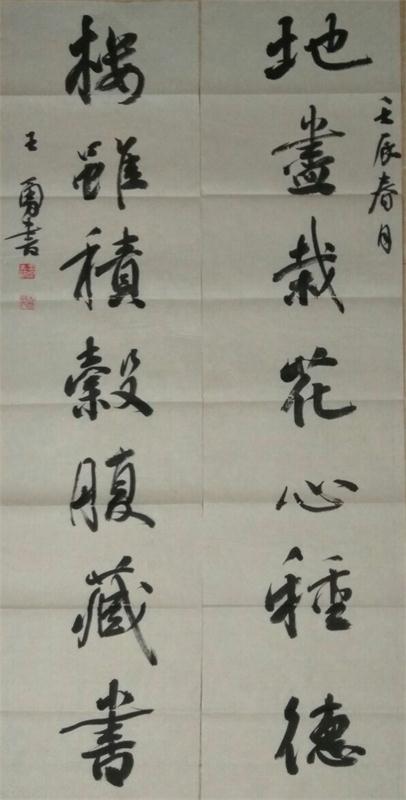 壬辰春月
地盡栽花心種德
樓雖積穀腹藏書
王勇書